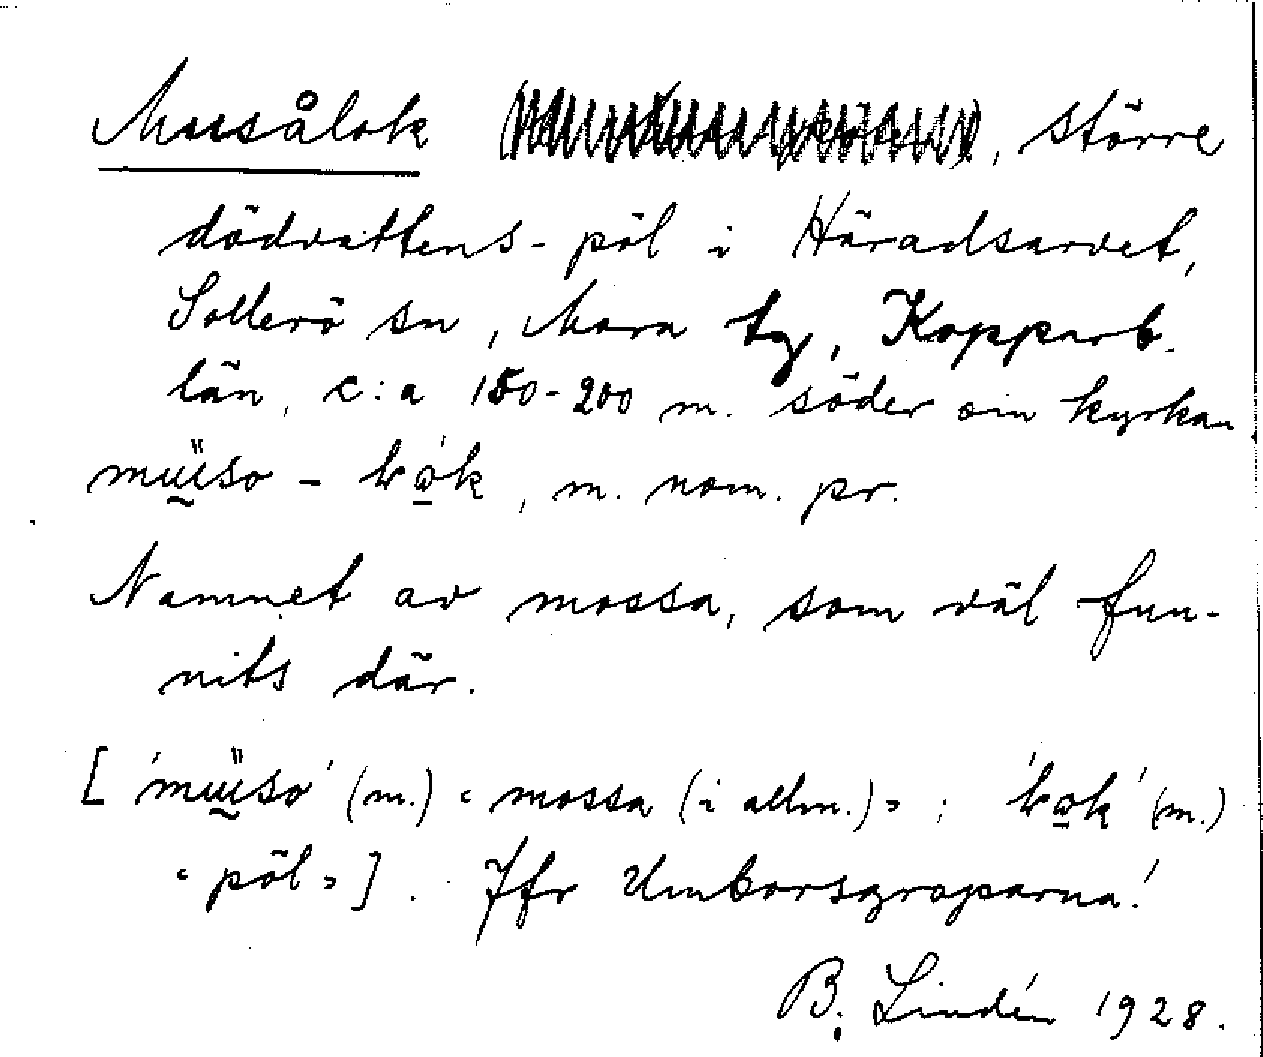 Musålok , större
dödvattens-pöl i Häradsarvet,
Sollerö sn, Mora tg, Kopparb.
län, c:a 150-200 m. söder om kyrkan.
m. nom. pr.
Namnet av mossa, som väl fun-
nits där.
[ (m.) "mossa (i allm.)"; (m.)
"pöl"]. Jfr Umborsgroparna!
B. Lindén 1928.